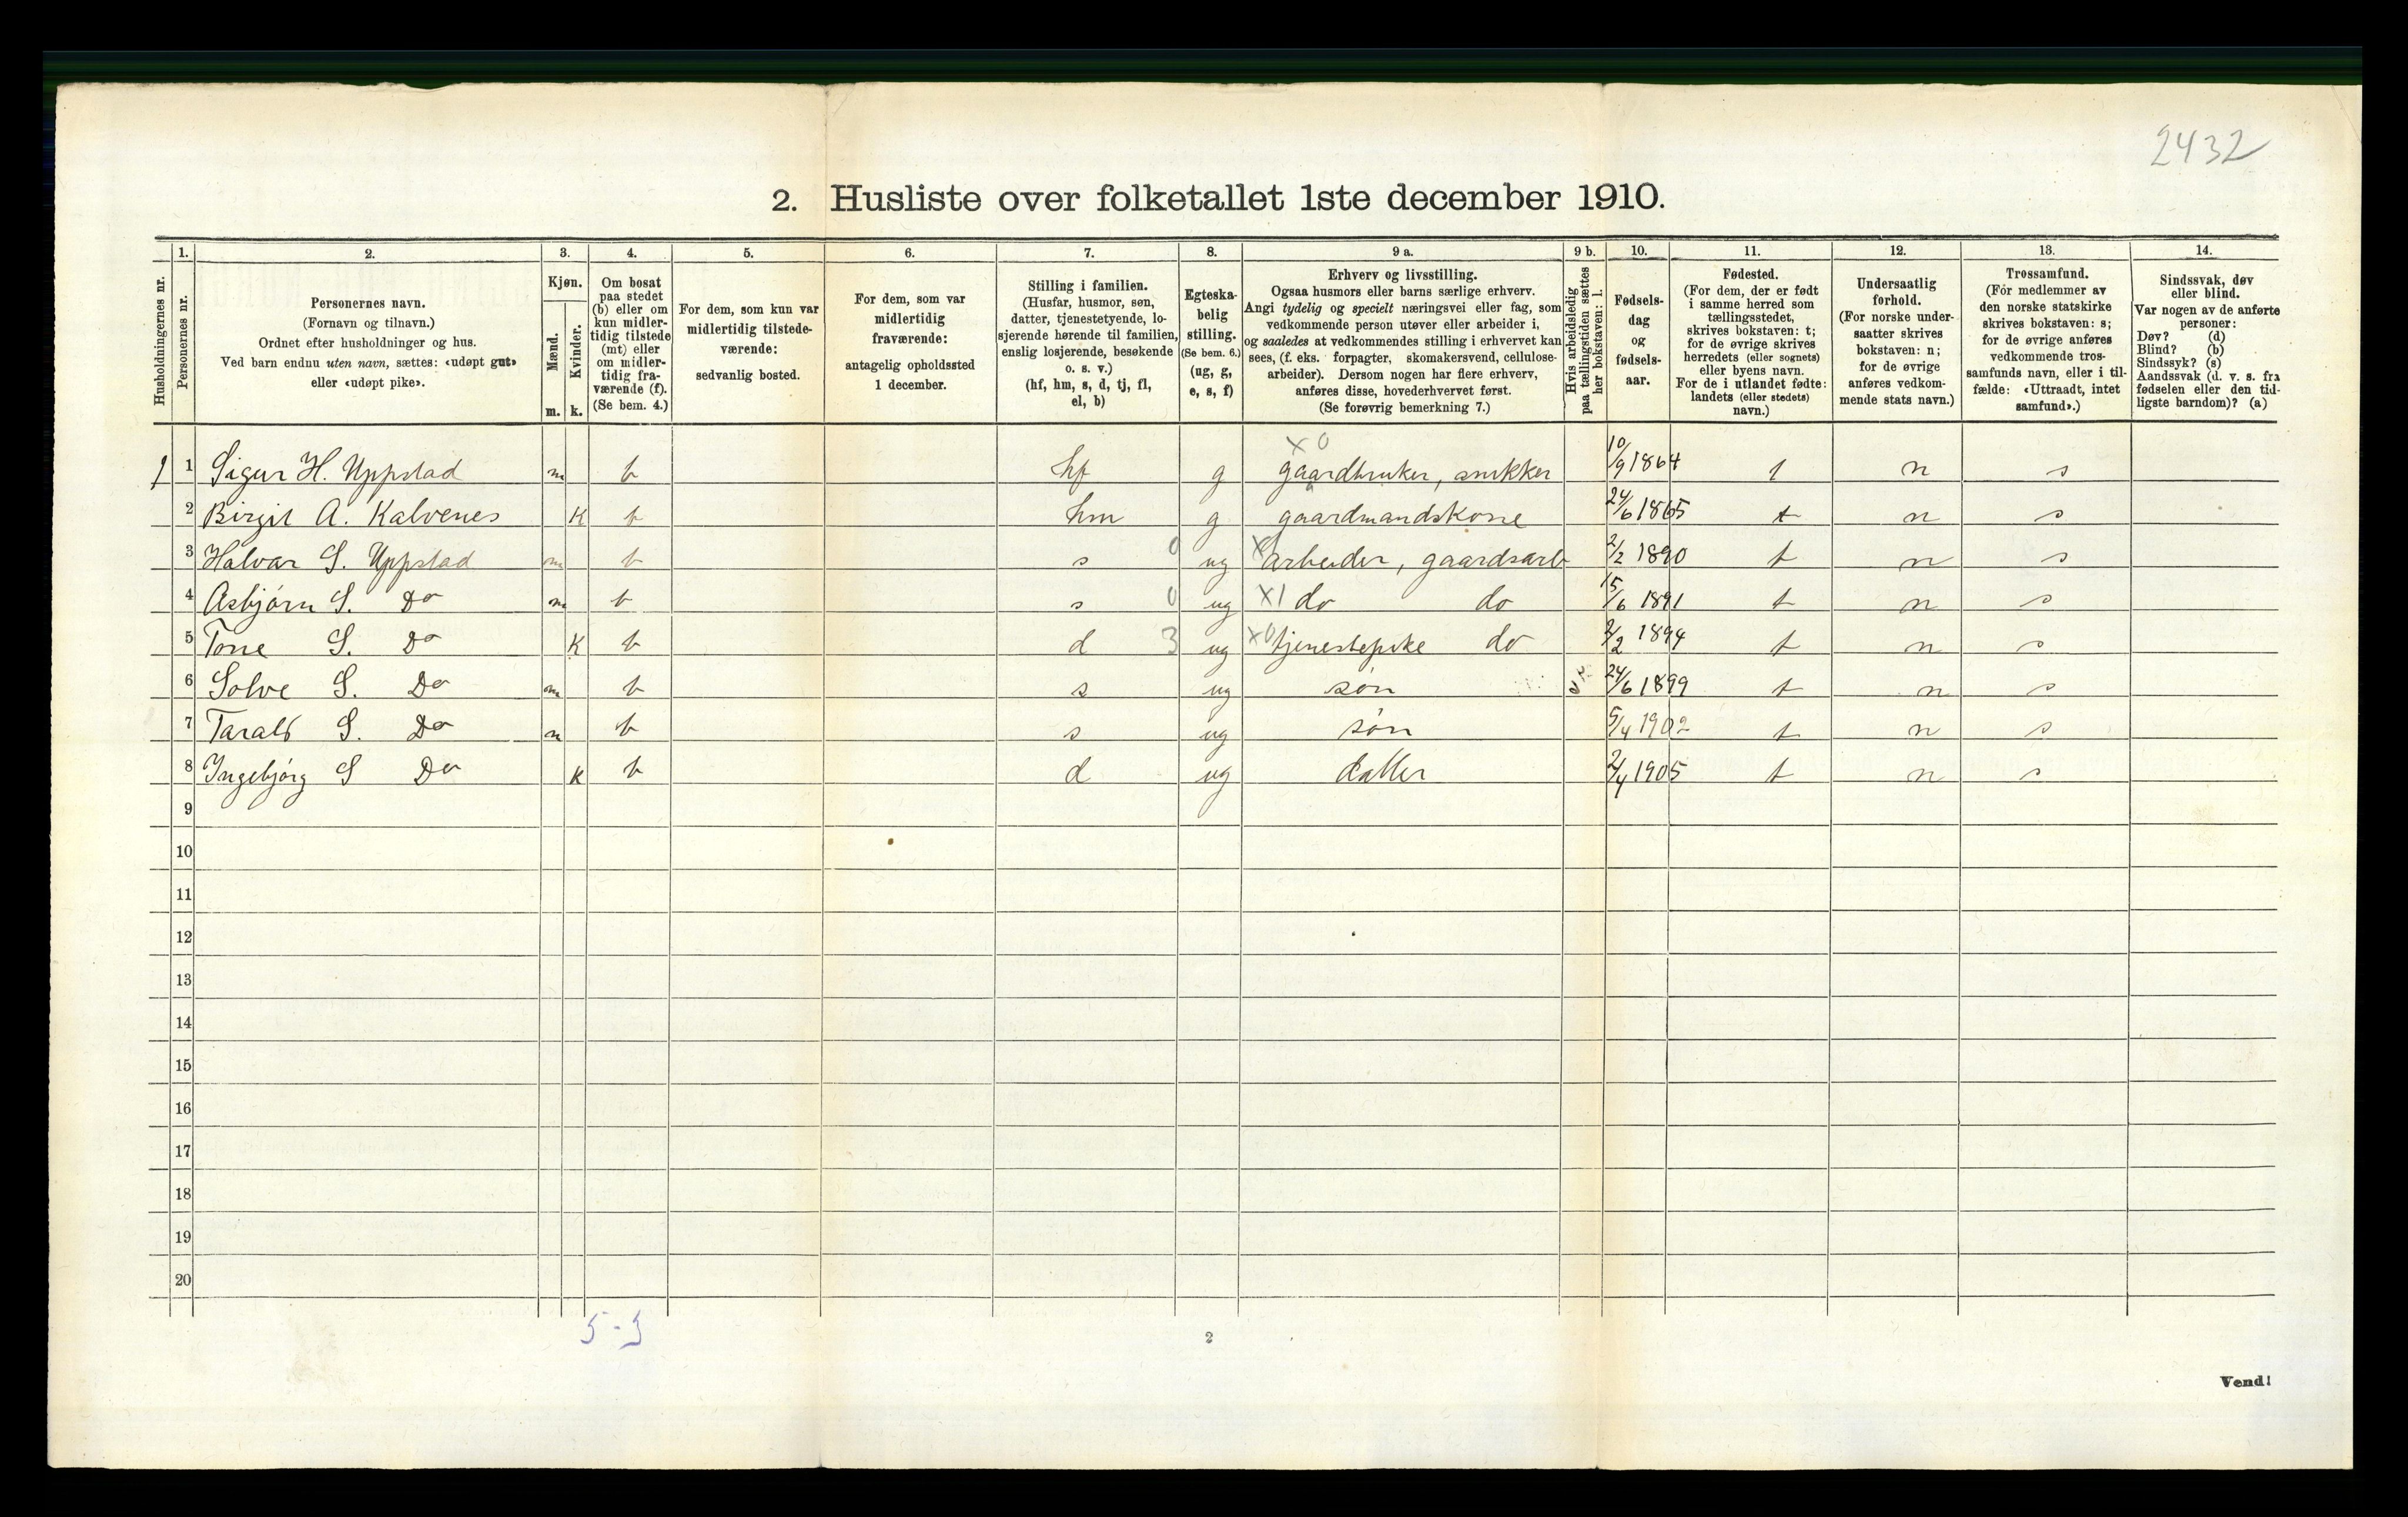 2432
2. Husliste over folketallet 1ste december 1910.
Husholdningernes nr.
1. Personernes nr.
2. Personernes navn.
(Fornavn og tilnavn.)
Ordnet efter husholdninger og hus.
Ved barn endnu uten navn, sættes: «udøpt gut»
eller «udøpt pike».
3. Kjøn.
Mænd. Kvinder.
m. k.
4. Om bosat
paa stedet
(b) eller om
kun midler-
tidig tilstede
(mt) eller
om midler-
tidig fra-
værende (f).
(Se bem. 4.)
5. For dem, som kun var
midlertidig tilstede-
værende:
sedvanlig bosted.
6. For dem, som var
midlertidig
fraværende:
antagelig opholdssted
1 december.
7. Stilling i familien.
(Husfar, husmor, søn,
datter, tjenestetyende, lo-
sjerende hørende til familien,
enslig losjerende, besøkende
o. s. v.)
(hf, hm, s, d, tj, fl,
el, b)
8. Egteska-
belig
stilling.
(Se bem. 6.)
(ug, g,
e, s, f)
9 a. Erhverv og livsstilling.
Ogsaa husmors eller barns særlige erhverv.
Angi tydelig og specielt næringsvei eller fag, som
vedkommende person utøver eller arbeider i,
og saaledes at vedkommendes stilling i erhvervet kan
sees, (f. eks. forpagter, skomakersvend, cellulose-
arbeider). Dersom nogen har flere erhverv,
anføres disse, hovederhvervet først.
(Se forøvrig bemerkning 7.)
9 b. Hvis arbeidsledig
paa tællingstiden sættes
her bokstaven: l.
10. Fødsels-
dag
og
fødsels-
aar.
11. Fødested.
(For dem, der er født
i samme herred som
tællingsstedet,
skrives bokstaven: t;
for de øvrige skrives
herredets (eller sognets)
eller byens navn.
For de i utlandet fødte:
landets (eller stedets)
navn.)
12. Undersaatlig
forhold.
(For norske under-
saatter skrives
bokstaven: n;
for de øvrige
anføres vedkom-
mende stats navn.)
13. Trossamfund.
(For medlemmer av
den norske statskirke
skrives bokstaven: s;
for de øvrige anføres
vedkommende tros-
samfunds navn, eller i til-
fælde: «Uttraadt, intet
samfund».)
14. Sindssvak, døv
eller blind.
Var nogen av de anførte
personer:
Døv? (d)
Blind? (b)
Sindssyk? (s)
Aandssvak (d. v. s. fra
fødselen eller den tid-
ligste barndom)? (a)
x 0
1 1 Sigur H. Uppstad m b hf g gaardbruker, snikker 10/9 1864 t n s
2 Birgit A. Kalvenes K b hm g gaardmandskone 24/6 1865 t n s
3 Halvar S. Uppstad m b s 0 ug x arbeider, gaardsarb 2/2 1890 t n s
4 Asbjørn S. Do m b s 0 ug x1 do do 15/6 1891 t n s
5 Tone S. Do K b d 3 ug x0 tjenestepike do 2/2 1894 t n s
6 Solve S. Do m b s ug søn 24/6 1899 t n s
7 Tarald S. Do m b s ug søn 5/4 1902 t n s
8 Ingebjørg S Do K b d ug datter 2/4 1905 t n s
9
10
11
12
13
14
15
16
17
18
19
20
5-3
2
Vend!